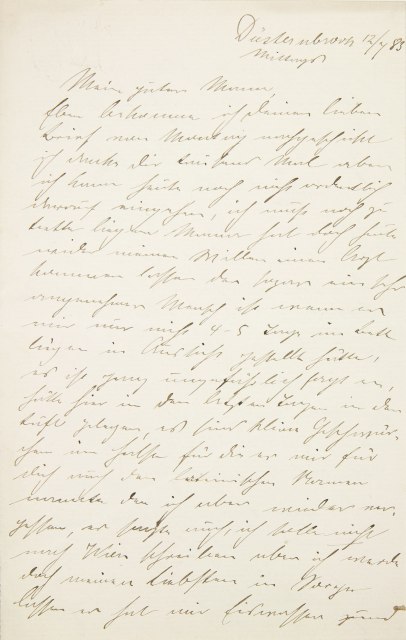 Düsternbrook 12/7 83
Mittags
Mein guter Mann,
Eben bekomme ich Deinen lieben
Brief von Montag nachgeschickt
ich danke Dir tausend Mal aber
ich kann heute noch nicht ordentlich
darauf eingehen, ich muß noch zu
Bette liegen hat doch heute
wider meinen Willen einen Arzt
kommen lassen der sogar ein sehr
angenehmer Mensch ist wenn er
mir nur nicht 4-5 Tage im Bett
liegen in Aussicht gestellt hätte,
es ist ganz ungefährlich sagt er,
hätte hier in den letzten Tagen in der
Luft gelegen, es sind kleine Geschwür-
chen im Halse für die er mir für
Dich auch den lateinischen Namen
nannte den ich aber wieder ver-
gessen, er sagte auch, ich solle nicht
nach schreiben aber ich werde
doch meinen Liebsten in Sorge
lassen er hat mir Eiswasser und